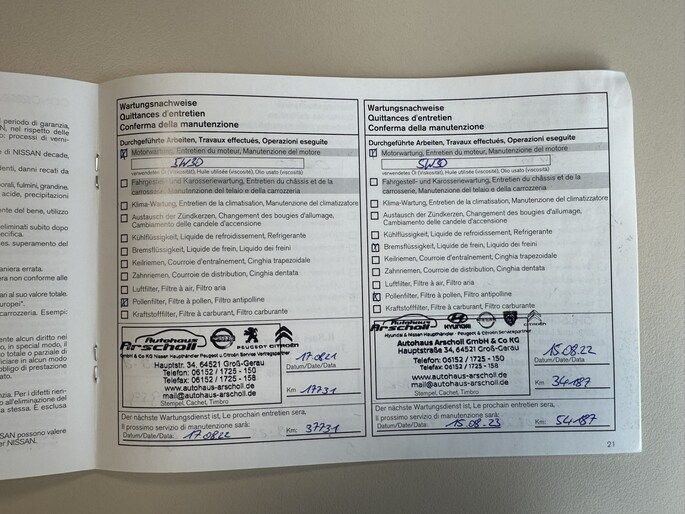 periodo di garanzia,
N, nel rispetto delle
processi di verni-
di NISSAN decade,
denti, danni recati da
orali, fulmini, grandine,
acide, precipitazioni
nte del bene, utilizzo
eliminati subito dopo
specifica.
es. superamento del
aniera errata.
era non conforme alle
ari al suo valore totale.
uropei".
carrozzeria. Esempi:
nte alcun diritto nei
o, in special modo, il
totale o parziale di
iciare in alcun modo
obbligo di prestazione
zia. Per i difetti rien-
o all'eliminazione del
a stessa. È esclusa
SSAN possono valere
er NISSAN.
Wartungsnachweise
Quittances d'entretien
Conferma della manutenzione
Durchgeführte Arbeiten, Travaux effectués, Operazioni eseguite
Motorwartung, Entretien du moteur, Manutenzione del motore
5W30
verwendetes Öl (Viskosität), Huile utilisée (viscosité), Olio usato (viscosità)
Fahrgestell- und Karosseriewartung, Entretien du châssis et de la
carrosserie, Manutenzione del telaio e della carrozzeria
Klima-Wartung, Entretien de la climatisation, Manutenzione del climatizzatore
Austausch der Zündkerzen, Changement des bougies d'allumage,
Cambiamento delle candele d'accensione
Kühlflüssigkeit, Liquide de refroidissement, Refrigerante
Bremsflüssigkeit, Liquide de frein, Liquido dei freini
Keilriemen, Courroie d'entraînement, Cinghia trapezoidale
Zahnriemen, Courroie de distribution, Cinghia dentata
Luftfilter, Filtre à air, Filtro aria
Pollenfilter, Filtre à pollen, Filtro antipolline
Kraftstofffilter, Filtre à carburant, Filtro carburante
Autohaus
Arscholl
NISSAN PEUGEOT CITROËN
GmbH & Co KG Nissan Haupthändler Peugeot u Citroën Service Vertragspartner
Hauptstr. 34, 64521 Groß-Gerau
Telefon: 06152 / 1725 - 150
Telefax: 06152 / 1725 - 158
www.autohaus-arscholl.de
mail@autohaus-arscholl.de
Stempel, Cachet, Timbro
17.08.21
Datum/Date/Data
Km 17731
Der nächste Wartungsdienst ist, Le prochain entretien sera,
Il prossimo servizio di manutenzione sarà:
Datum/Date/Data: 17.08.22 Km: 37731
Wartungsnachweise
Quittances d'entretien
Conferma della manutenzione
Durchgeführte Arbeiten, Travaux effectués, Operazioni eseguite
Motorwartung, Entretien du moteur, Manutenzione del motore
5W30
verwendetes Öl (Viskosität), Huile utilisée (viscosité), Olio usato (viscosità)
Fahrgestell- und Karosseriewartung, Entretien du châssis et de la
carrosserie, Manutenzione del telaio e della carrozzeria
Klima-Wartung, Entretien de la climatisation, Manutenzione del climatizzatore
Austausch der Zündkerzen, Changement des bougies d'allumage,
Cambiamento delle candele d'accensione
Kühlflüssigkeit, Liquide de refroidissement, Refrigerante
Bremsflüssigkeit, Liquide de frein, Liquido dei freini
Keilriemen, Courroie d'entraînement, Cinghia trapezoidale
Zahnriemen, Courroie de distribution, Cinghia dentata
Luftfilter, Filtre à air, Filtro aria
Pollenfilter, Filtre à pollen, Filtro antipolline
Kraftstofffilter, Filtre à carburant, Filtro carburante
Autohaus
Arscholl
HYUNDAI
Hyundai & Nissan Haupthändler Peugeot & Citroën Servicepartner
Autohaus Arscholl GmbH & Co KG
Hauptstraße 34, 64521 Groß-Gerau
Telefon: 06152 / 1725 - 150
Telefax: 06152 / 1725 - 158
www.autohaus-arscholl.de
mail@autohaus-arscholl.de
Stempel, Cachet, Timbro
15.08.22
Datum/Date/Data
Km 34187
Der nächste Wartungsdienst ist, Le prochain entretien sera,
Il prossimo servizio di manutenzione sarà:
Datum/Date/Data: 15.08.23 Km: 54187
21